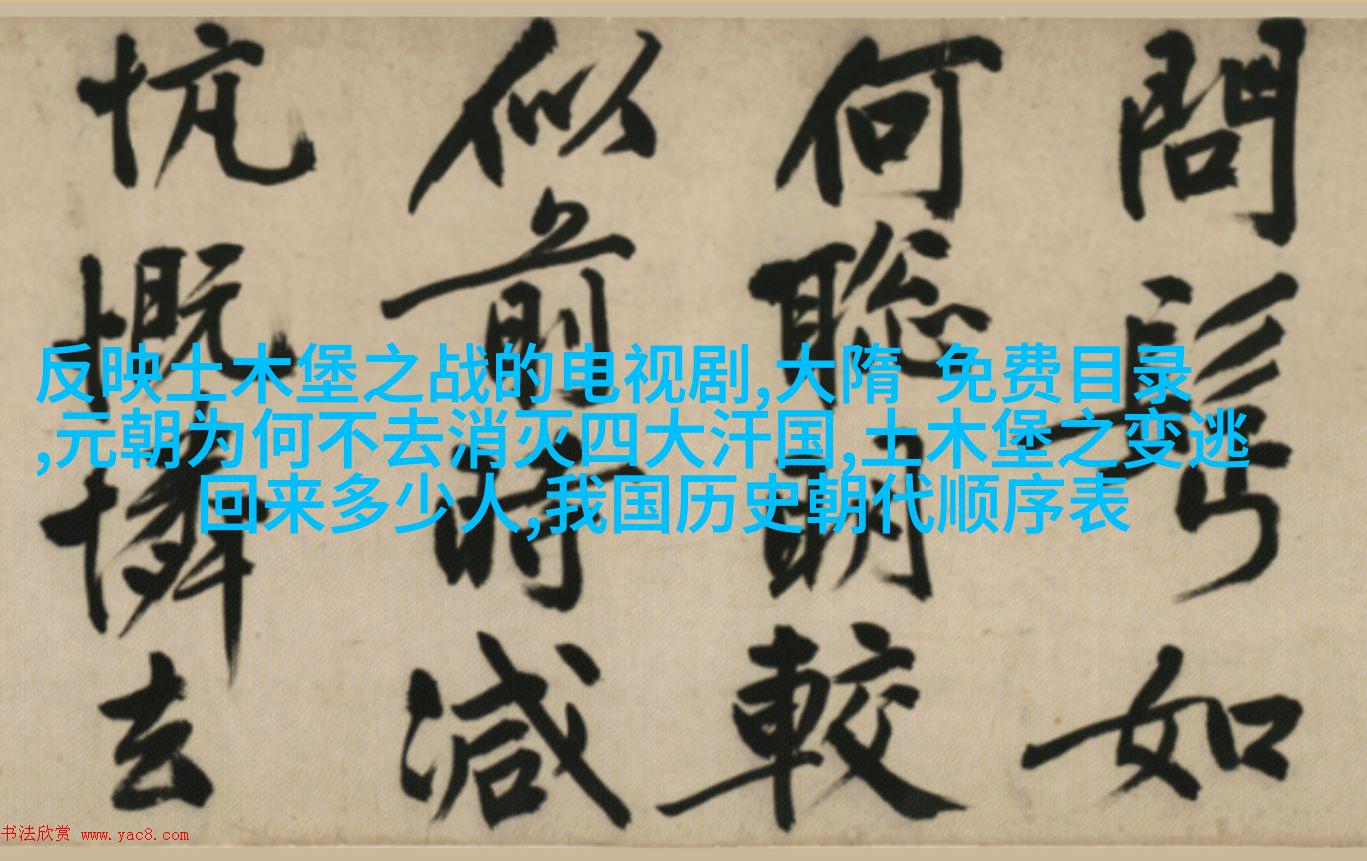 問如
何聰明較
似前時減
忼慨憐去
反映土木堡之战的电视剧,大隋 免费目录
,元朝为何不去消灭四大汗国,土木堡之变逃
回来多少人,我国历史朝代顺序表
书法欣赏 www.yac8.com